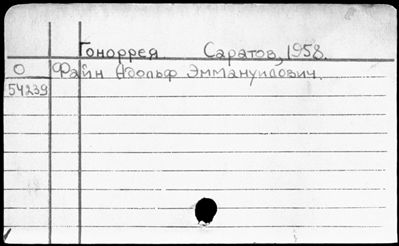 Гоноррея. Саратов, 1958.
О Файн Адольф Эммануилович.
54239